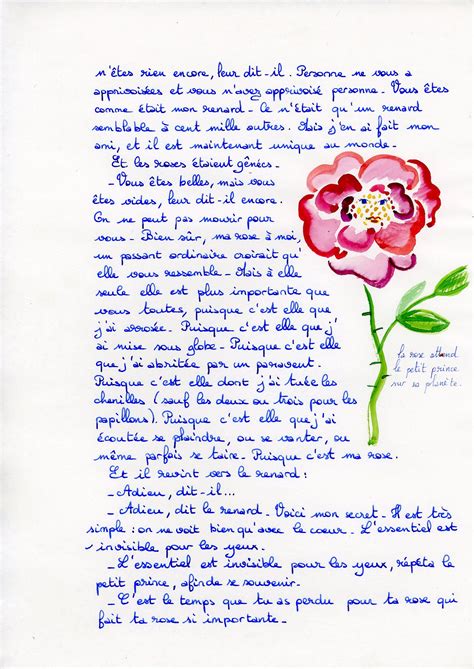 n'êtes rien encore, leur dit-il. Personne ne vous a
apprivoisées et vous n'avez apprivoisé personne - Vous êtes
comme était mon renard - Ce n'était qu'un renard
semblable à cent mille autres. Mais j'en ai fait mon
ami, et il est maintenant unique au monde -
Et les roses étaient gênées -
- Vous êtes belles, mais vous
êtes vides, leur dit-il encore.
On ne peut pas mourir pour
vous - Bien sûr, ma rose à moi,
un passant ordinaire croirait qu'
elle vous ressemble - Mais à elle
seule elle est plus importante que
vous toutes, puisque c'est elle que
j'ai arrosée - Puisque c'est elle que j'
ai mise sous globe - Puisque c'est elle
que j'ai abritée par un paravent.
Puisque c'est elle dont j'ai tuée les
chenilles (sauf les deux ou trois pour les
papillons). Puisque c'est elle que j'ai
écoutée se plaindre, ou se vanter, ou
même parfois se taire - Puisque c'est ma rose.
Et il revint vers le renard :
- Adieu, dit-il...
- Adieu, dit le renard - Voici mon secret - Il est très
simple : on ne voit bien qu'avec le coeur - L'essentiel est
invisible pour les yeux.
- L'essentiel est invisible pour les yeux, répéta le
petit prince, afin de se souvenir -
- C'est le temps que tu as perdu pour ta rose qui
fait ta rose si importante -
la rose attend
le petit prince
sur sa planète.